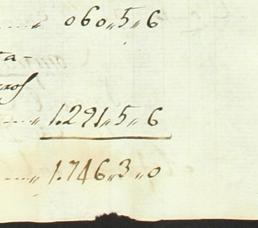 060,,5,,6
ta-
1.291,,5,,6
1.746,,3,,0